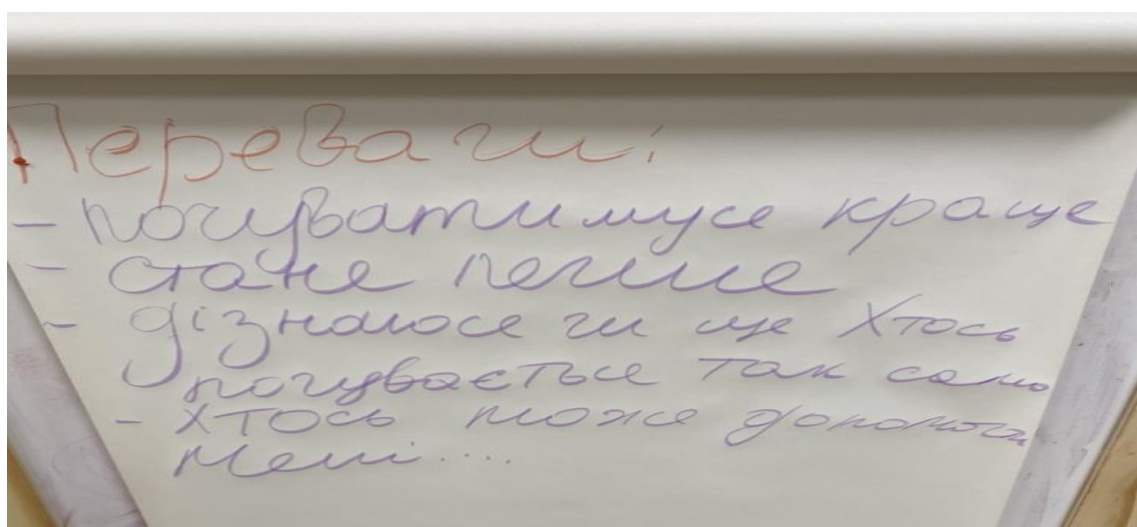 Переваги:
- почуватимуся краще
- стане легше
- дізнаюся чи ще хтось
почувається так само
- хтось може допомогти
мені....